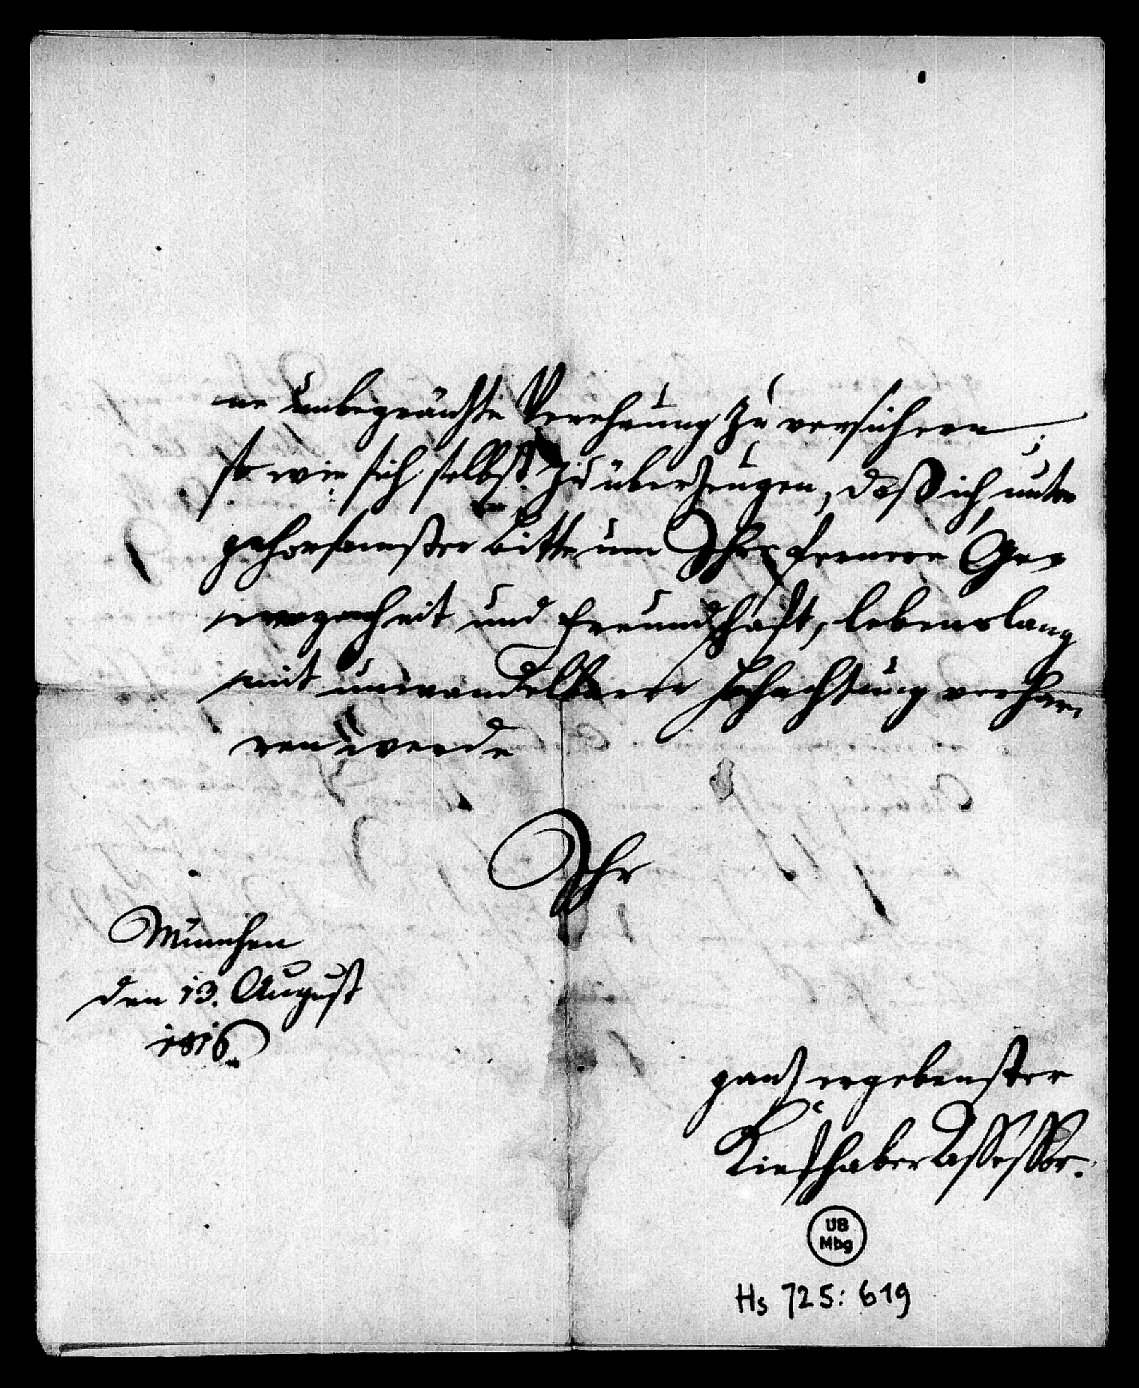 ne unbegränzte Verehrung zu versichern,
so wie sich selbst zu überzeugen, daß ich, unter
gehorsamster Bitte um Ihre fernere Ge-
wogenheit und Freundschaft, lebenslang
mit unwandelbarer Hochachtung verhar-
ren werde
Ihr
München
den 13. August
1816.
ganz ergebenster
Kiefhaber Assessor.
UB
Mbg
Hs 725: 619